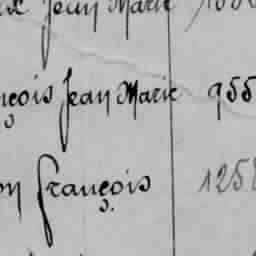 Jean Marie
nçois Jean Marie 955
on François 1258